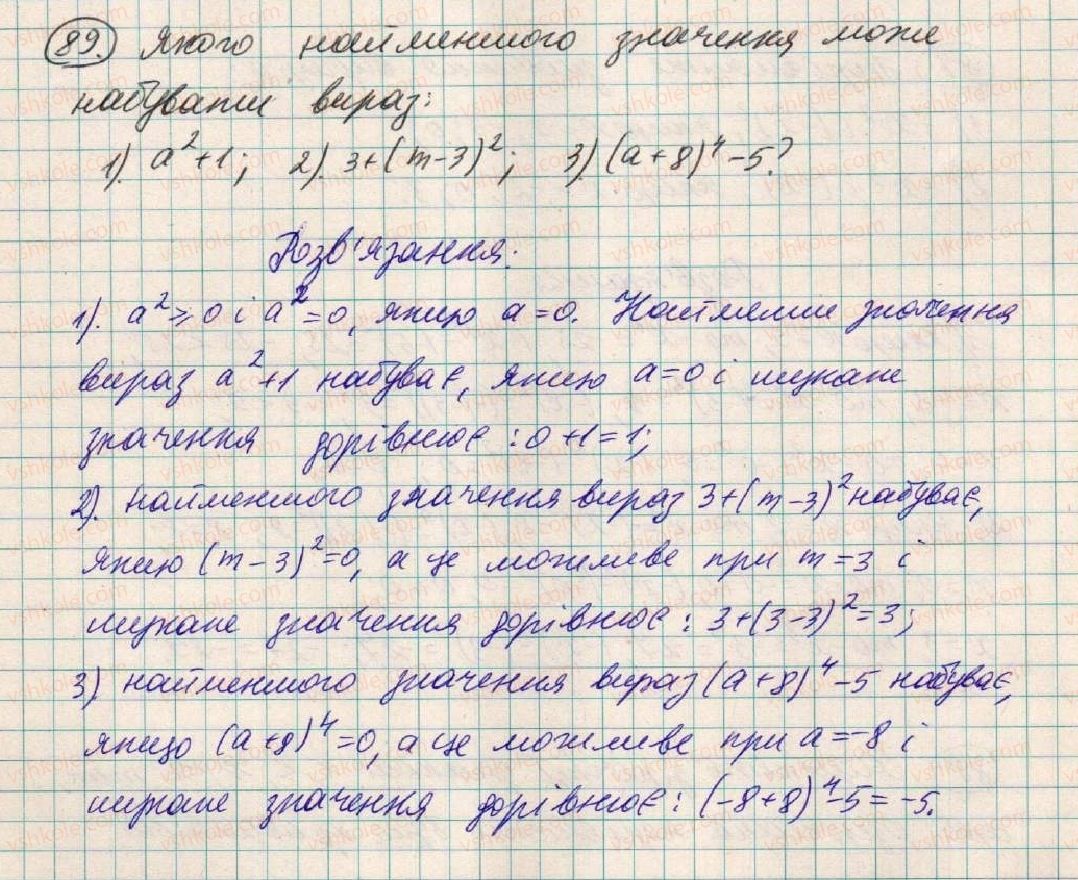 89. Якого найменшого значення може
набувати вираз:
1). a²+1; 2). 3+(m-3)²; 3) (a+8)⁴-5?
Розв'язання:
1). a²⩾0 і a²=0, якщо a=0. Найменше значення
вираз a²+1 набуває, якщо a=0 і шукане
значення дорівнює: 0+1=1;
2). найменшого значення вираз 3+(m-3)² набуває,
якщо (m-3)²=0, а це можливе при m=3 і
шукане значення дорівнює: 3+(3-3)²=3;
3) найменшого значення вираз (a+8)⁴-5 набуває,
якщо (a+8)⁴=0, а це можливе при a=-8 і
шукане значення дорівнює: (-8+8)⁴-5=-5.